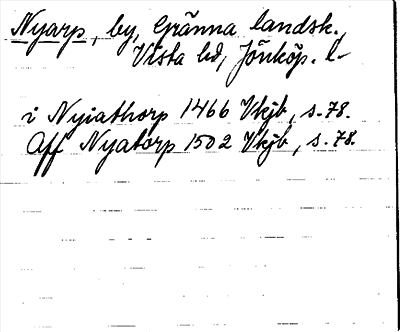 Nyarp, by, Gränna landsk.,
Vista hd, Jönköp. l-
i Nyiathorp 1466 Vkjb, s. 78.
Aff Nyatorp 1502 Vkjb, s. 78.